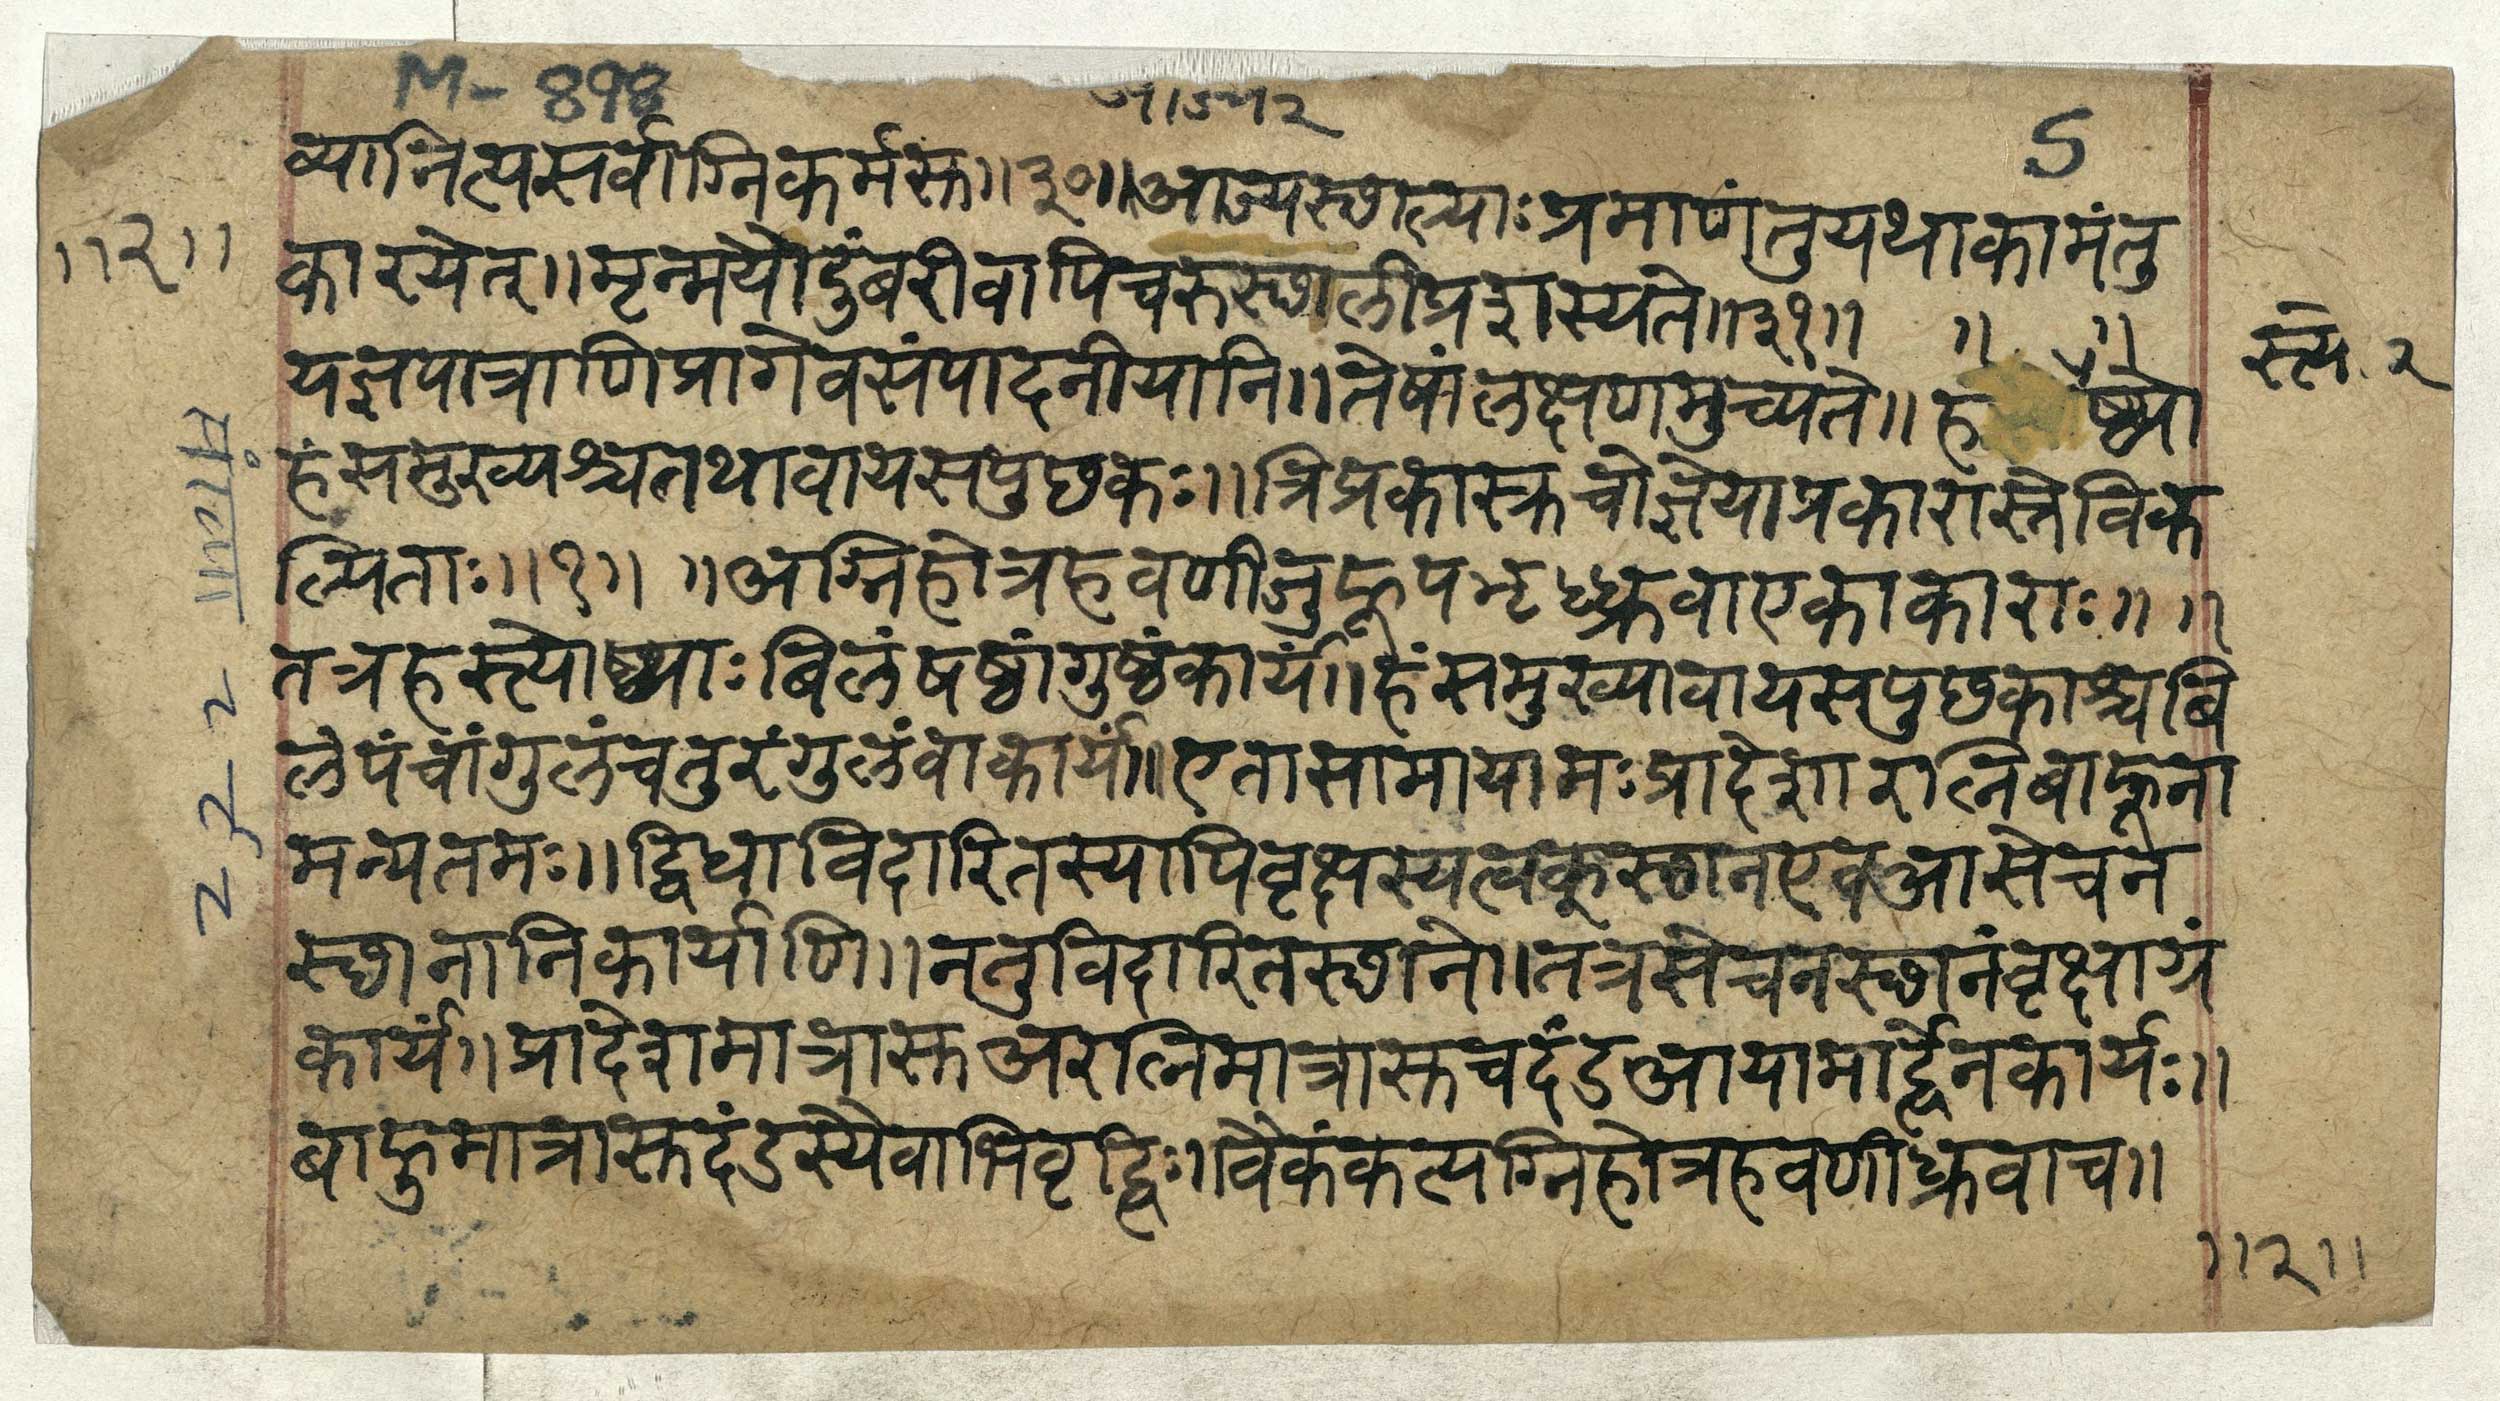 M-898
आज्य २
5
व्यानित्यसर्वाग्निकर्मस्क॥३०॥आज्यस्छाल्याःप्रमाणंतुयथाकामंतु
॥२॥
कारयेत्॥मृन्मयौदुंबरीवापिचरुस्छालीप्रशस्यते॥३१॥ ॥ ॥
स्त्यो २
यज्ञपात्राणिप्रागेवसंपादनीयानि॥तेषांलक्षणमुच्यते॥ह ष्ठ्यो
हंसमुख्यश्चतथावायसपुछकः॥त्रिप्रकारस्क्रचोज्ञेयाप्रकारास्तेविक
ल्पिताः॥१॥ ॥अग्निहोत्रहवणीजुहूपभृध्क्रवाएकाकाराः॥ ॥
तत्रहस्त्योष्ठ्याःबिलंषष्ठांगुष्ठंकार्यं॥हंसमुख्यावायसपुछकाश्चबि
लंपंचांगुलंचतुरंगुलंवाकार्यं॥एतासामायामःप्रादेशारत्निबाहूना
मन्यतमः॥द्विधाविदारितस्यापिवृक्षस्यत्वक्स्छानएवआसेचन
स्छानानिकार्याणि॥नतुविदारितस्छाने॥तत्रसेचनस्छानंवृक्षाग्रं
कार्यं॥प्रादेशमात्रास्कअरत्निमात्रास्कचदंडआयामार्द्धेनकार्यः॥
बाहुमात्रास्कदंडस्यैवाभिवृद्धिः॥वैकंकत्यग्निहोत्रहवणीध्क्रवाच॥
॥२॥
232-2